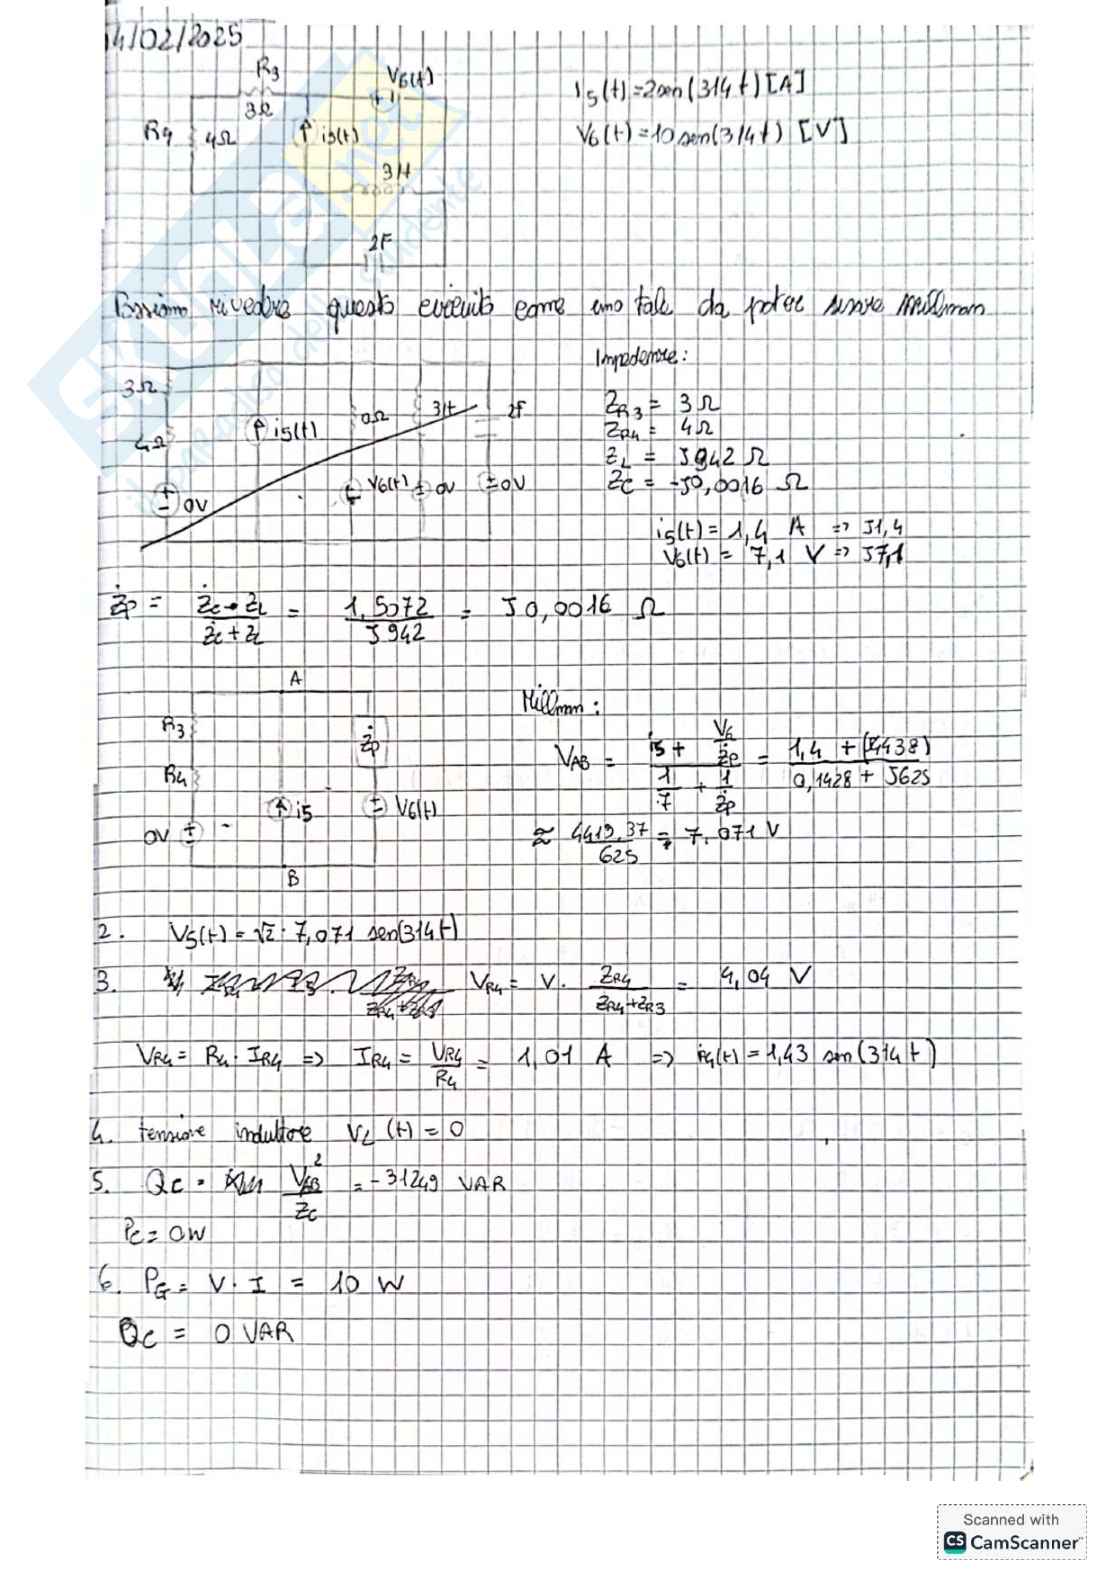 14/02/2025
R3
3Ω
V6(t)
+ -
i5(t)=2sen(314t)[A]
R4
4Ω
i5(t)
V6(t)=10sen(314t) [V]
3H
2F
questo circuito come uno tale da poter Millman
Impedenze:
3Ω
4Ω
i5(t)
0Ω
3H
2F
+ - 0V
V6(t)
+ - 0V
+ - 0V
ZR3 = 3 Ω
ZR4 = 4 Ω
ZL = J942 Ω
ZC = -J0,0016 Ω
i5(t) = 1,4 A => J1,4
V6(t) = 7,1 V => J7,1
Żp = ŻC·ŻL / ŻC+ŻL = 1,5072 / J942 = J0,0016 Ω
A
R3
R4
Żp
i5
V6(t)
0V
B
Millman:
VAB = (i5 + V6/Żp) / (1/7 + 1/Żp) = 1,4 + (4438) / 0,1428 + J625
≈ 4419,37 / 625 = 7,071 V
2. V5(t) = √2 · 7,071 sen(314t)
3. VR4 = V · ZR4 / ZR4+ZR3 = 4,04 V
VR4 = R4 · IR4 => IR4 = VR4 / R4 = 1,01 A => i4(t) = 1,43 sen(314t)
4. tensione induttore VL (t) = 0
5. QC = VAB² / ZC = -31249 VAR
PC = 0W
6. PG = V · I = 10 W
QC = 0 VAR
Scanned with
CS CamScanner